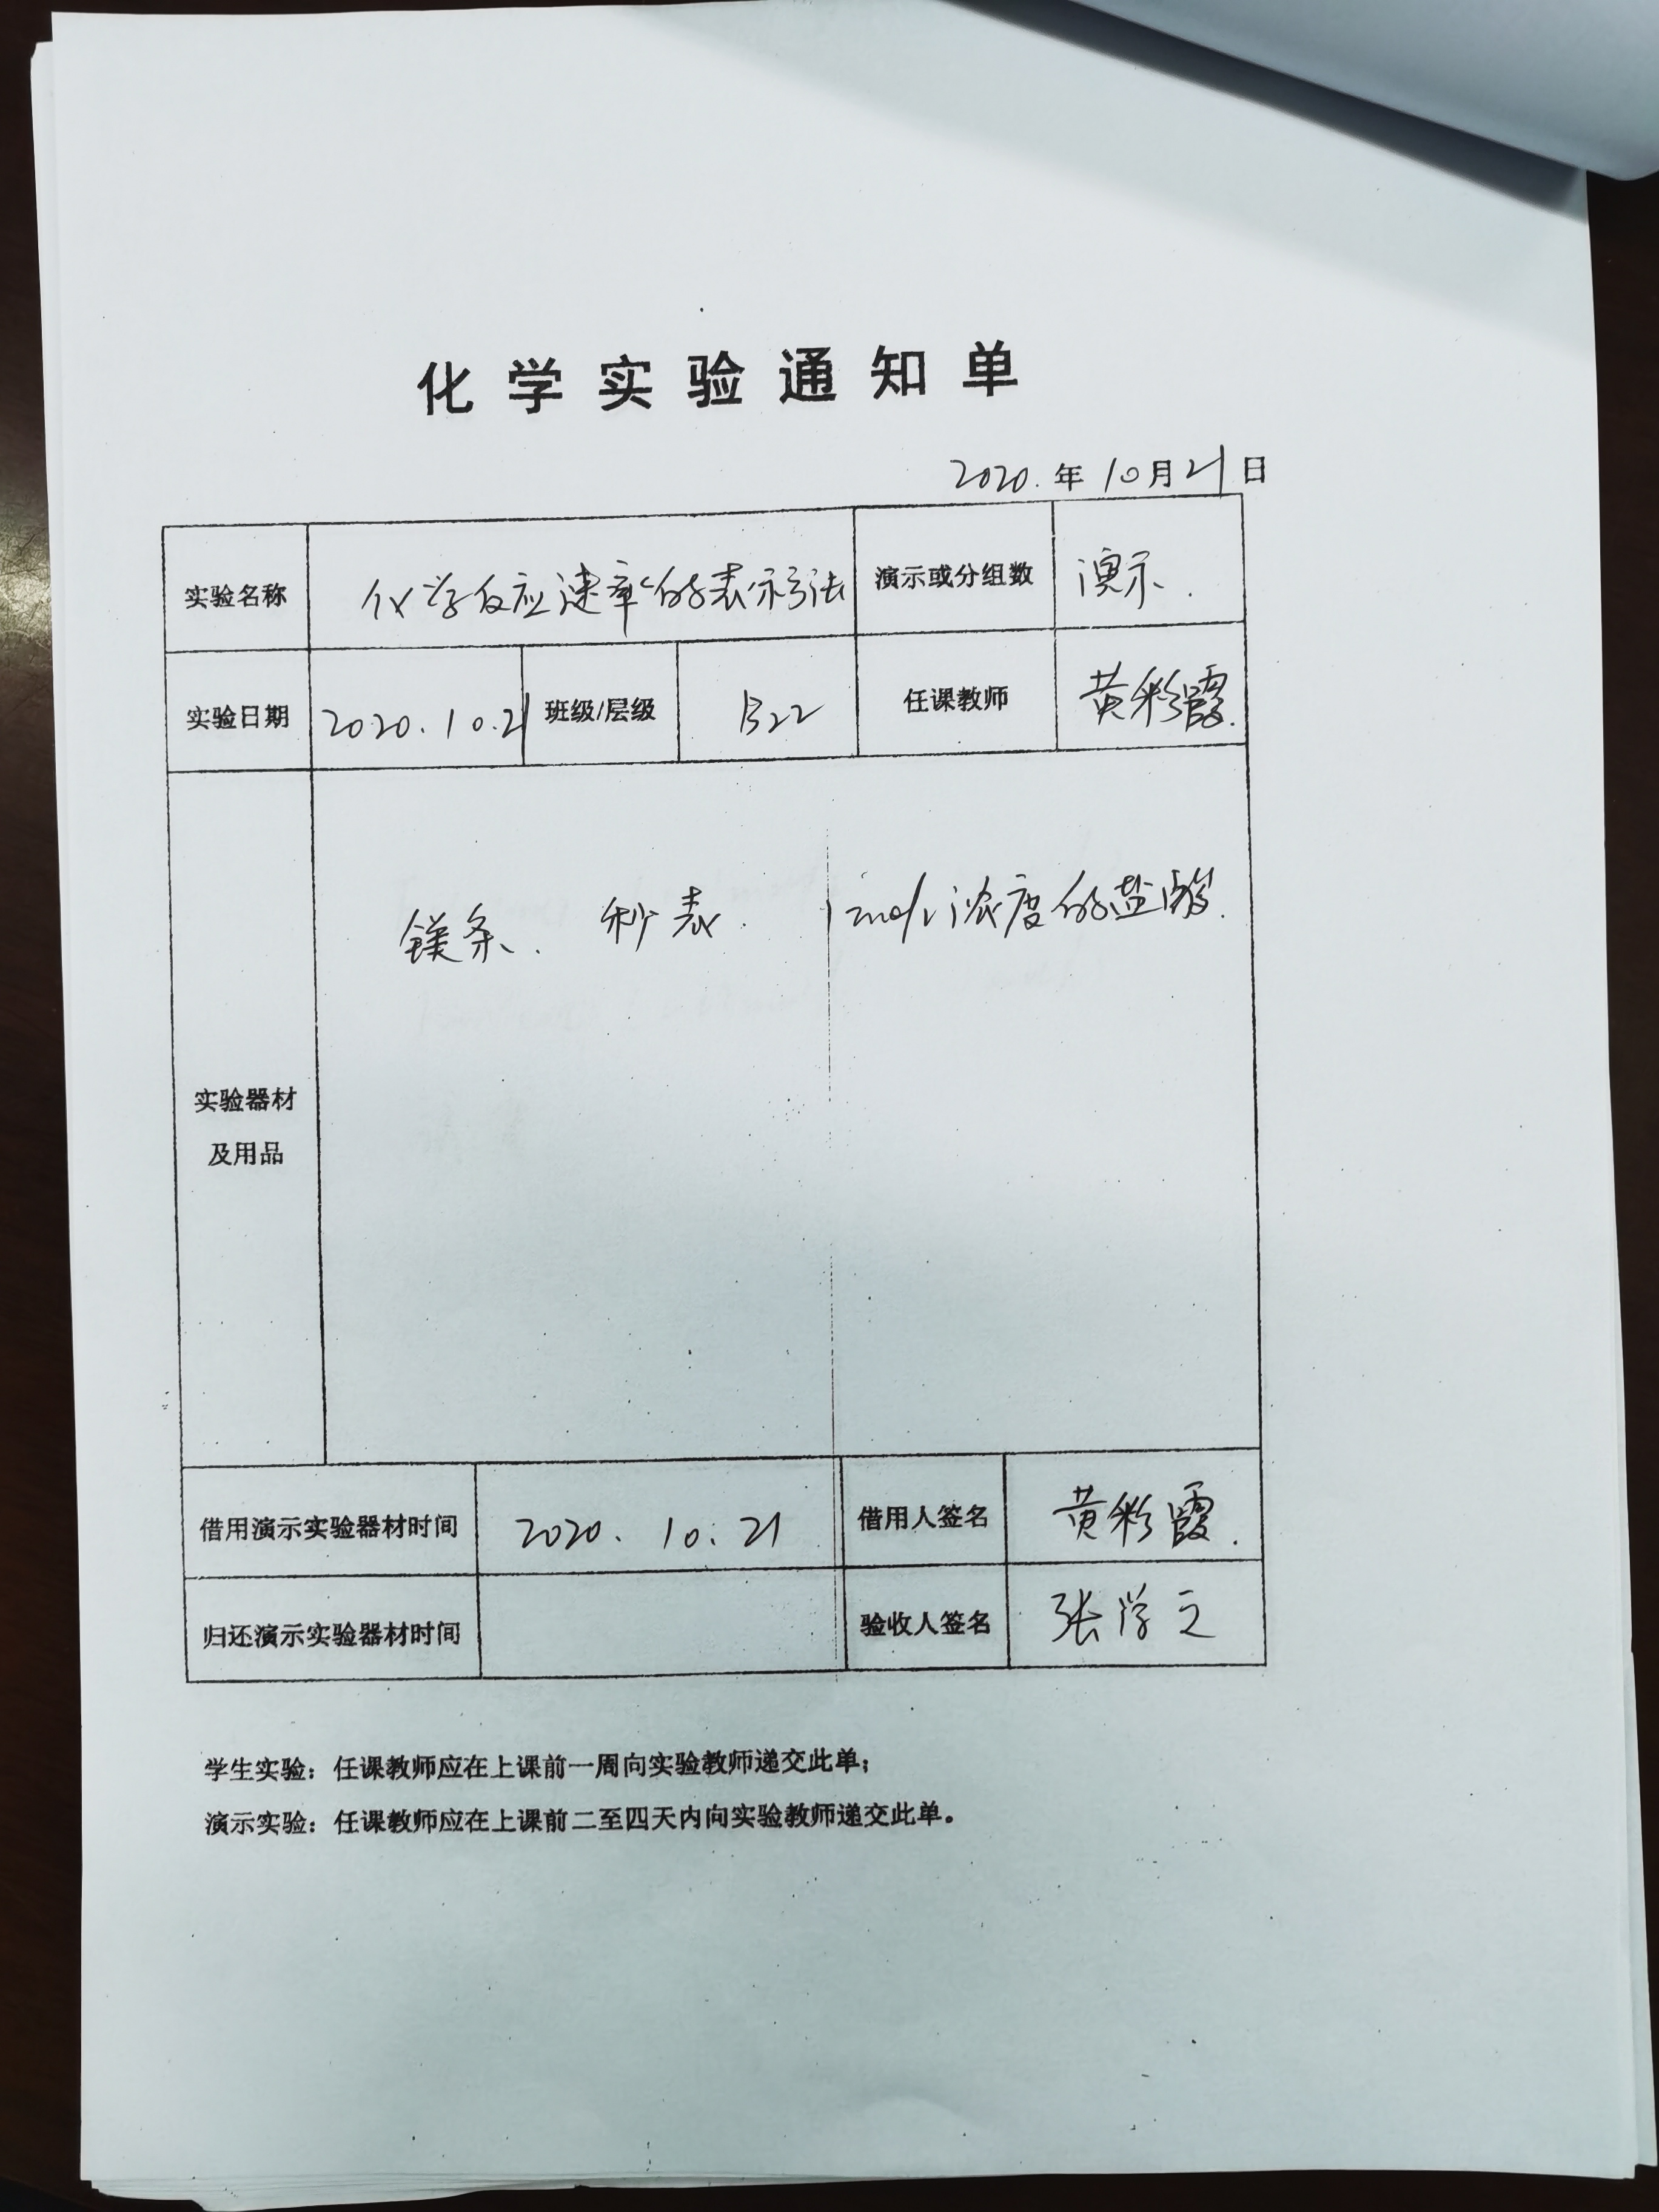 化学实验通知单
2020.年10月21日
实验名称 化学反应速率的表示方法 演示或分组数 演示.
实验日期 2020.10.21 班级/层级 B22 任课教师 黄彩霞.
镁条、 秒表. 1mol/L浓度的盐酸.
实验器材
及用品
借用演示实验器材时间 2020. 10. 21 借用人签名 黄彩霞.
归还演示实验器材时间 验收人签名 张学文
学生实验：任课教师应在上课前一周向实验教师递交此单；
演示实验：任课教师应在上课前二至四天内向实验教师递交此单。